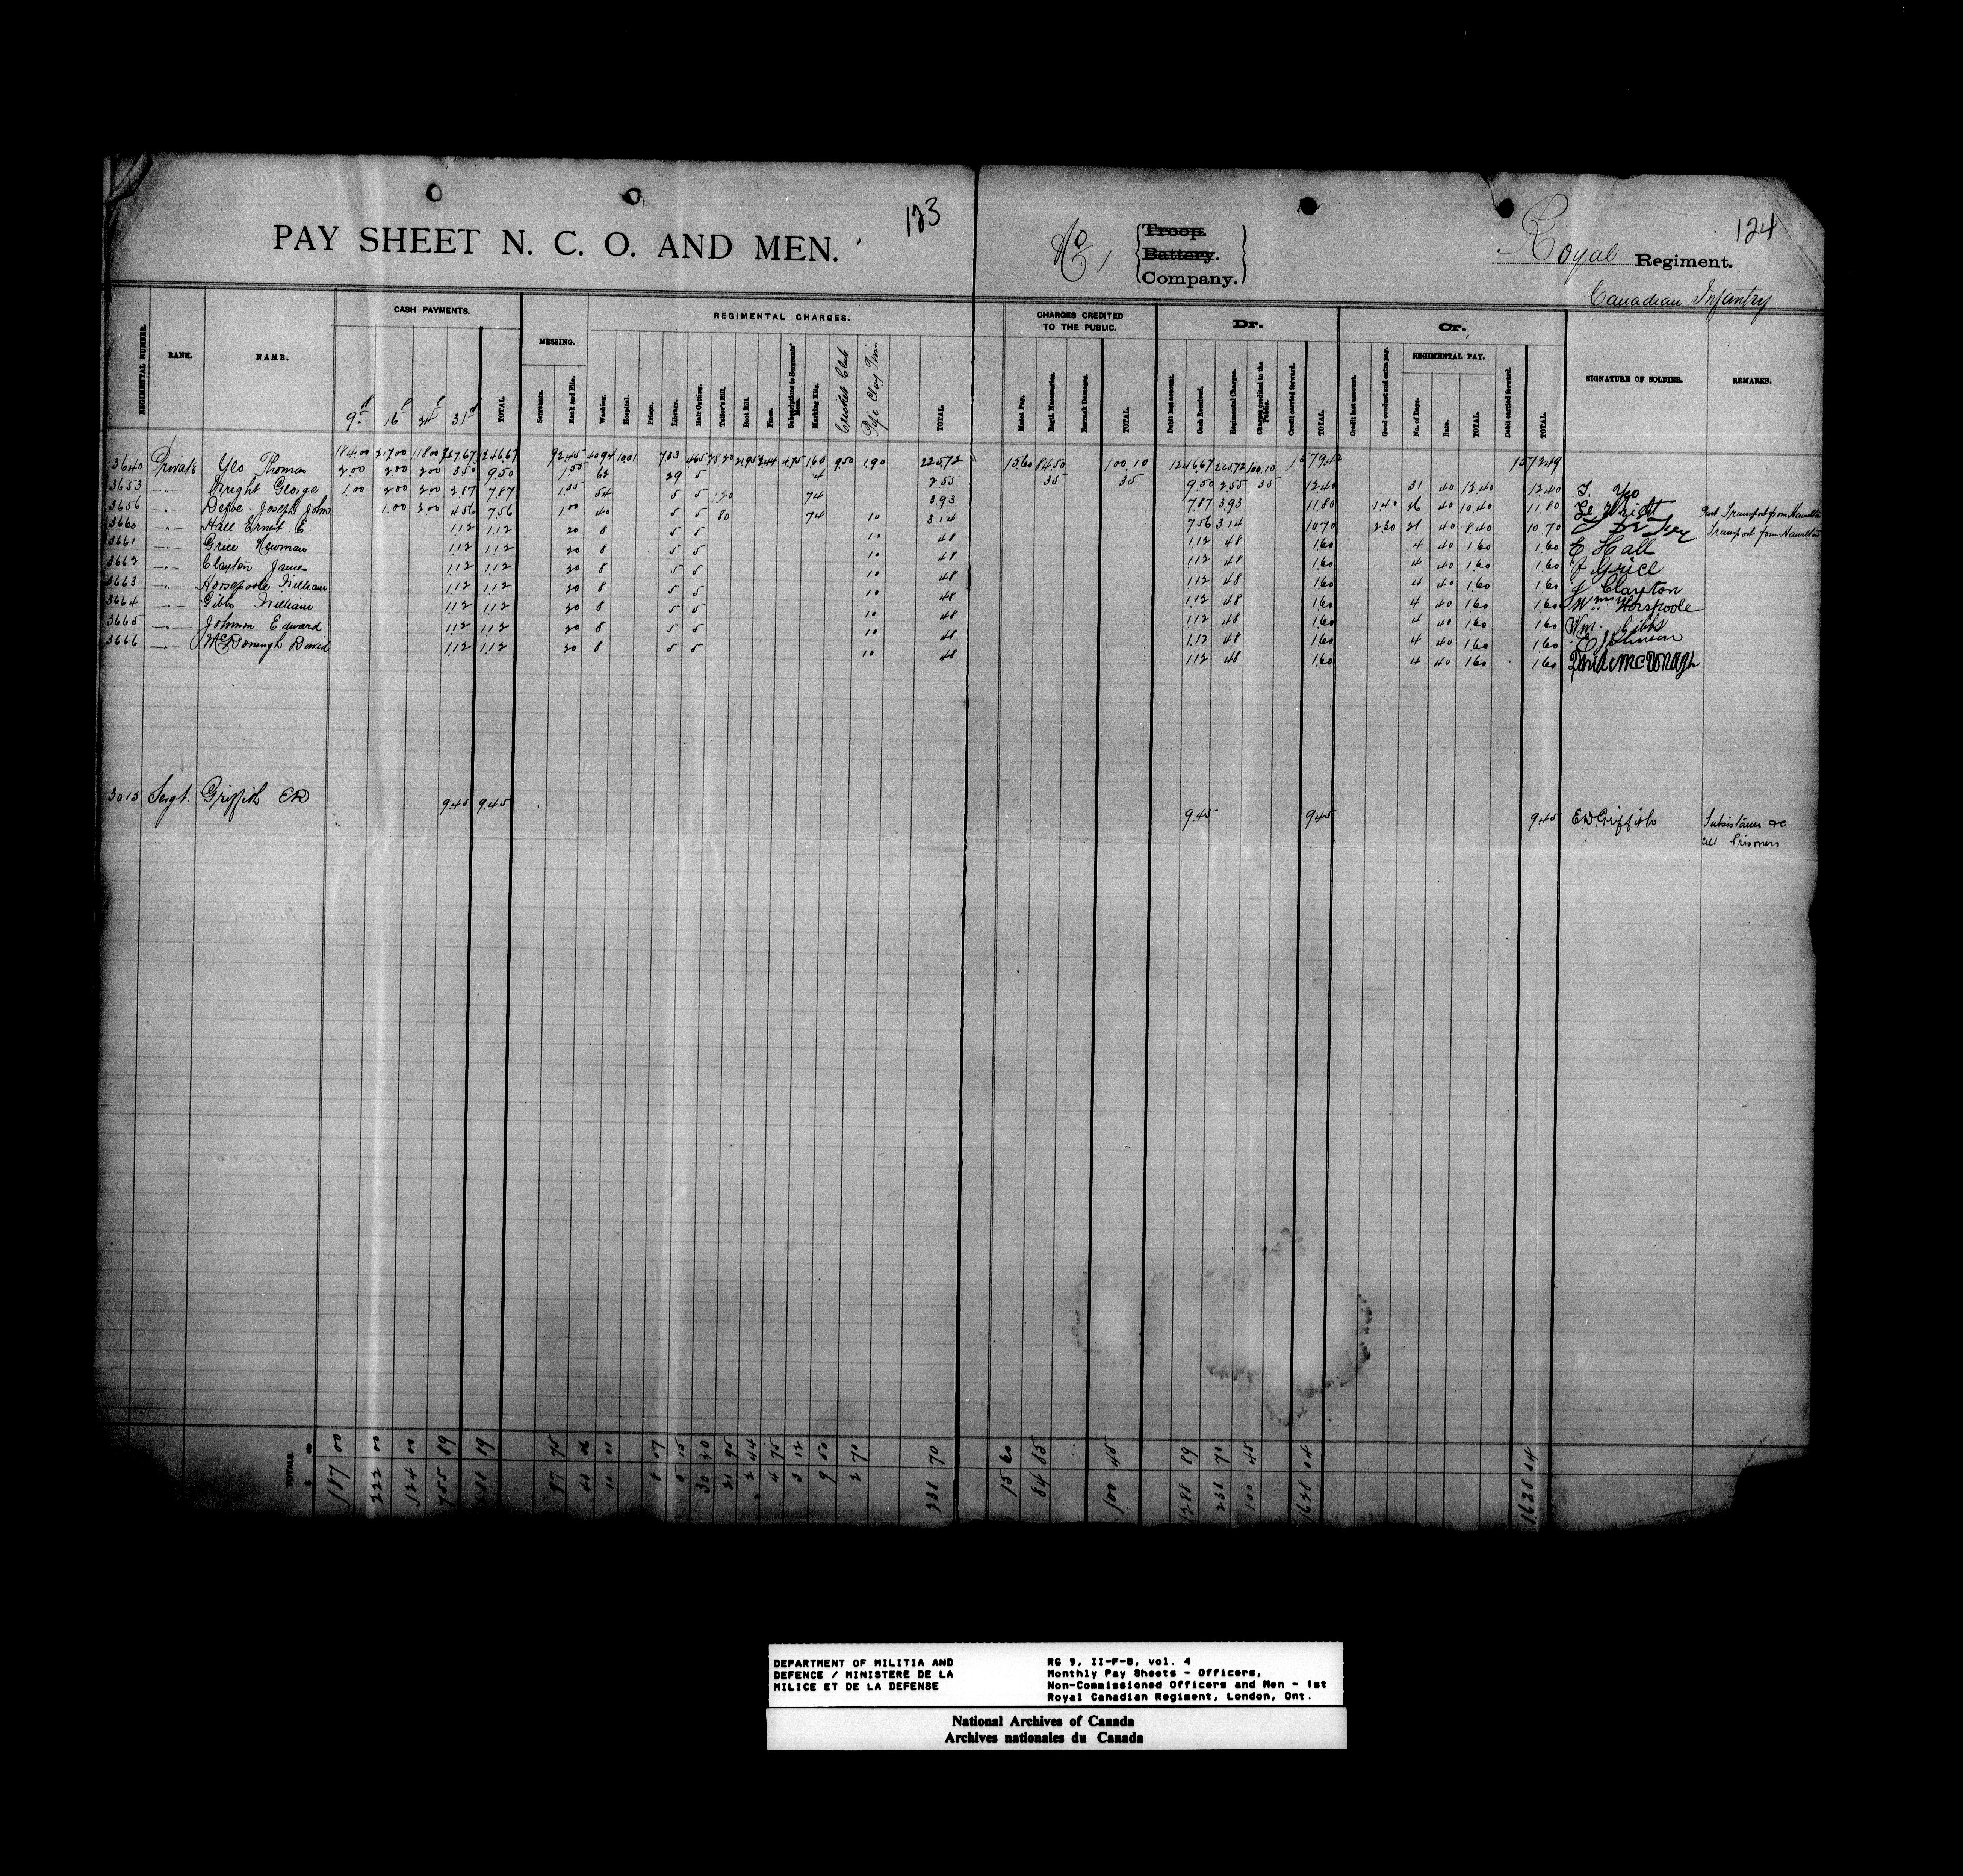 123
124
PAY SHEET N. C. O. AND MEN.
No 1 { Troop. Battery. Company. }
Royal Regiment.
Canadian Infantry
REGIMENTAL NUMBER. RANK. NAME. CASH PAYMENTS. MESSING. REGIMENTAL CHARGES. CHARGES CREDITED TO THE PUBLIC. Dr. Cr. SIGNATURE OF SOLDIER. REMARKS.
9th 16th 24th 31st TOTAL
Sergeants. Rank and File. Washing. Hospital. Prison. Library. Hair Cutting. Tailor's Bill. Boot Bill. Fines. Subscriptions to Sergeants' Mess. Marking Kits. Cricket Club Pipe Clay Tins TOTAL
Mulct Pay. Regtl. Necessaries. Barrack Damages. TOTAL
Debit last account. Cash Received. Regimental Charges. Charges credited to the Public. Credit carried forward. TOTAL
Credit last account. Good conduct and extra pay. REGIMENTAL PAY. No. of Days. Rate. TOTAL Debit carried forward. TOTAL
184.00 217.00 118.00 727.67 1246.67 92.45 40.94 10.01 7.83 4.65 28.20 21.95 2.44 4.75 1.60 9.50 1.90 225.72 15.60 84.50 100.10 1246.67 225.72 100.10 1572.49
3640 Private Yeo Thomas 2.00 2.00 2.00 3.50 9.50 1.55 62 29 5 4 2.55 35 35 9.50 2.55 35 12.40 31 40 12.40 12.40 T. Yeo
3653 " Wright George 1.00 2.00 2.00 2.87 7.87 1.35 54 5 5 1.20 74 3.93 7.87 3.93 11.80 1.40 26 40 10.40 11.80 Ge Wright Part Transport from Hamilton
3656 " Defoe Joseph John 1.00 2.00 4.56 7.56 1.00 40 5 5 80 74 10 3.14 7.56 3.14 10.70 2.30 21 40 8.40 10.70 Transport from Hamilton
3660 " Hall Ernest E. 1.12 1.12 20 8 5 5 10 48 1.12 48 1.60 4 40 1.60 1.60 E Hall
3661 " Grice Newman 1.12 1.12 20 8 5 5 10 48 1.12 48 1.60 4 40 1.60 1.60 N Grice
3662 " Clayton James 1.12 1.12 20 8 5 5 10 48 1.12 48 1.60 4 40 1.60 1.60 J Clayton
3663 " Horsepoole William 1.12 1.12 20 8 5 5 10 48 1.12 48 1.60 4 40 1.60 1.60 Wm Horspoole
3664 " Gibbs William 1.12 1.12 20 8 5 5 10 48 1.12 48 1.60 4 40 1.60 1.60 Wm. Gibbs
3665 " Johnson Edward 1.12 1.12 20 8 5 5 10 48 1.12 48 1.60 4 40 1.60 1.60 E Johnson
3666 " McDonough David 1.12 1.12 20 8 5 5 10 48 1.12 48 1.60 4 40 1.60 1.60 David McDonagh
3015 Sergt. Griffith ED 9.45 9.45 9.45 9.45 9.45 E.D. Griffith Subsistence &c
Prisoners
TOTALS. 187 00 222 00 124 00 755 89 97 75 10 01 8 07 5 15 30 20 21 95 2 44 4 75 3 12 9 50 2 70 238 70 15 60 84 85 100 45 1288 89 238 70 100 45 1628 04 1628 04
DEPARTMENT OF MILITIA AND
DEFENCE / MINISTERE DE LA
MILICE ET DE LA DEFENSE
RG 9, II-F-8, vol. 4
Monthly Pay Sheets - Officers,
Non-Commissioned Officers and Men - 1st
Royal Canadian Regiment, London, Ont.
National Archives of Canada
Archives nationales du Canada